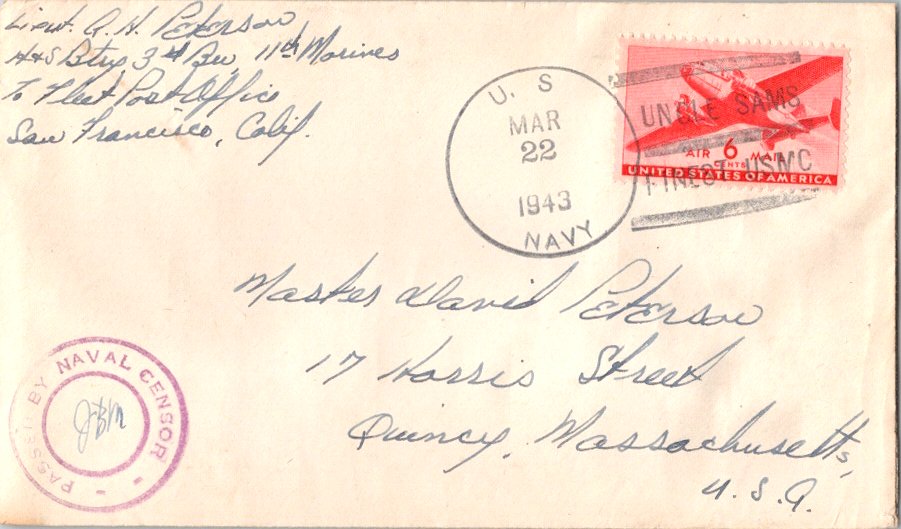 Lieut. A. H. Peterson
H+S Btry 3rd Bn, 11th Marines
To Fleet Post Office
San Francisco, Calif.
U. S.
MAR
22
1943
NAVY
UNCLE SAMS
FINEST USMC
AIR 6 MAIL
CENTS
UNITED STATES OF AMERICA
Master David Peterson
17 Harris Street
Quincy, Massachusetts,
U. S. A.
PASSED BY NAVAL CENSOR